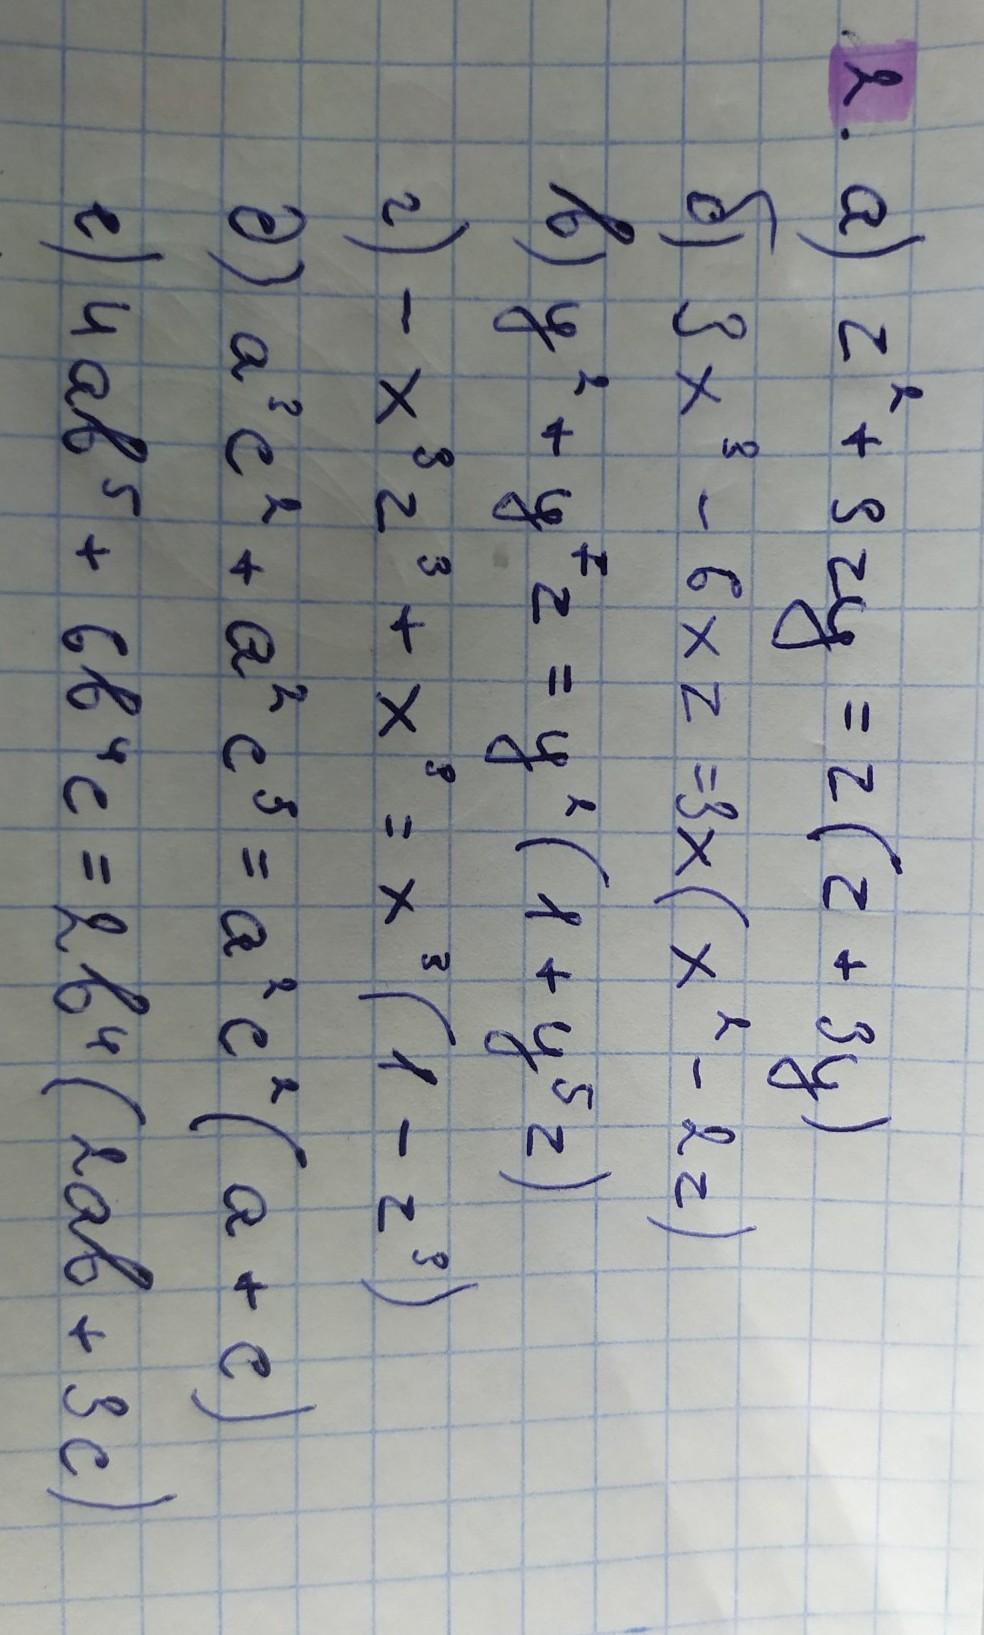 2. а) z² + 3zy = z(z + 3y)
б) 3x³ - 6xz = 3x(x² - 2z)
в) y² + y⁷z = y²(1 + y⁵z)
г) - x³z³ + x³ = x³(1 - z³)
д) a³c² + a²c³ = a²c²(a + c)
е) 4ab⁵ + 6b⁴c = 2b⁴(2ab + 3c)